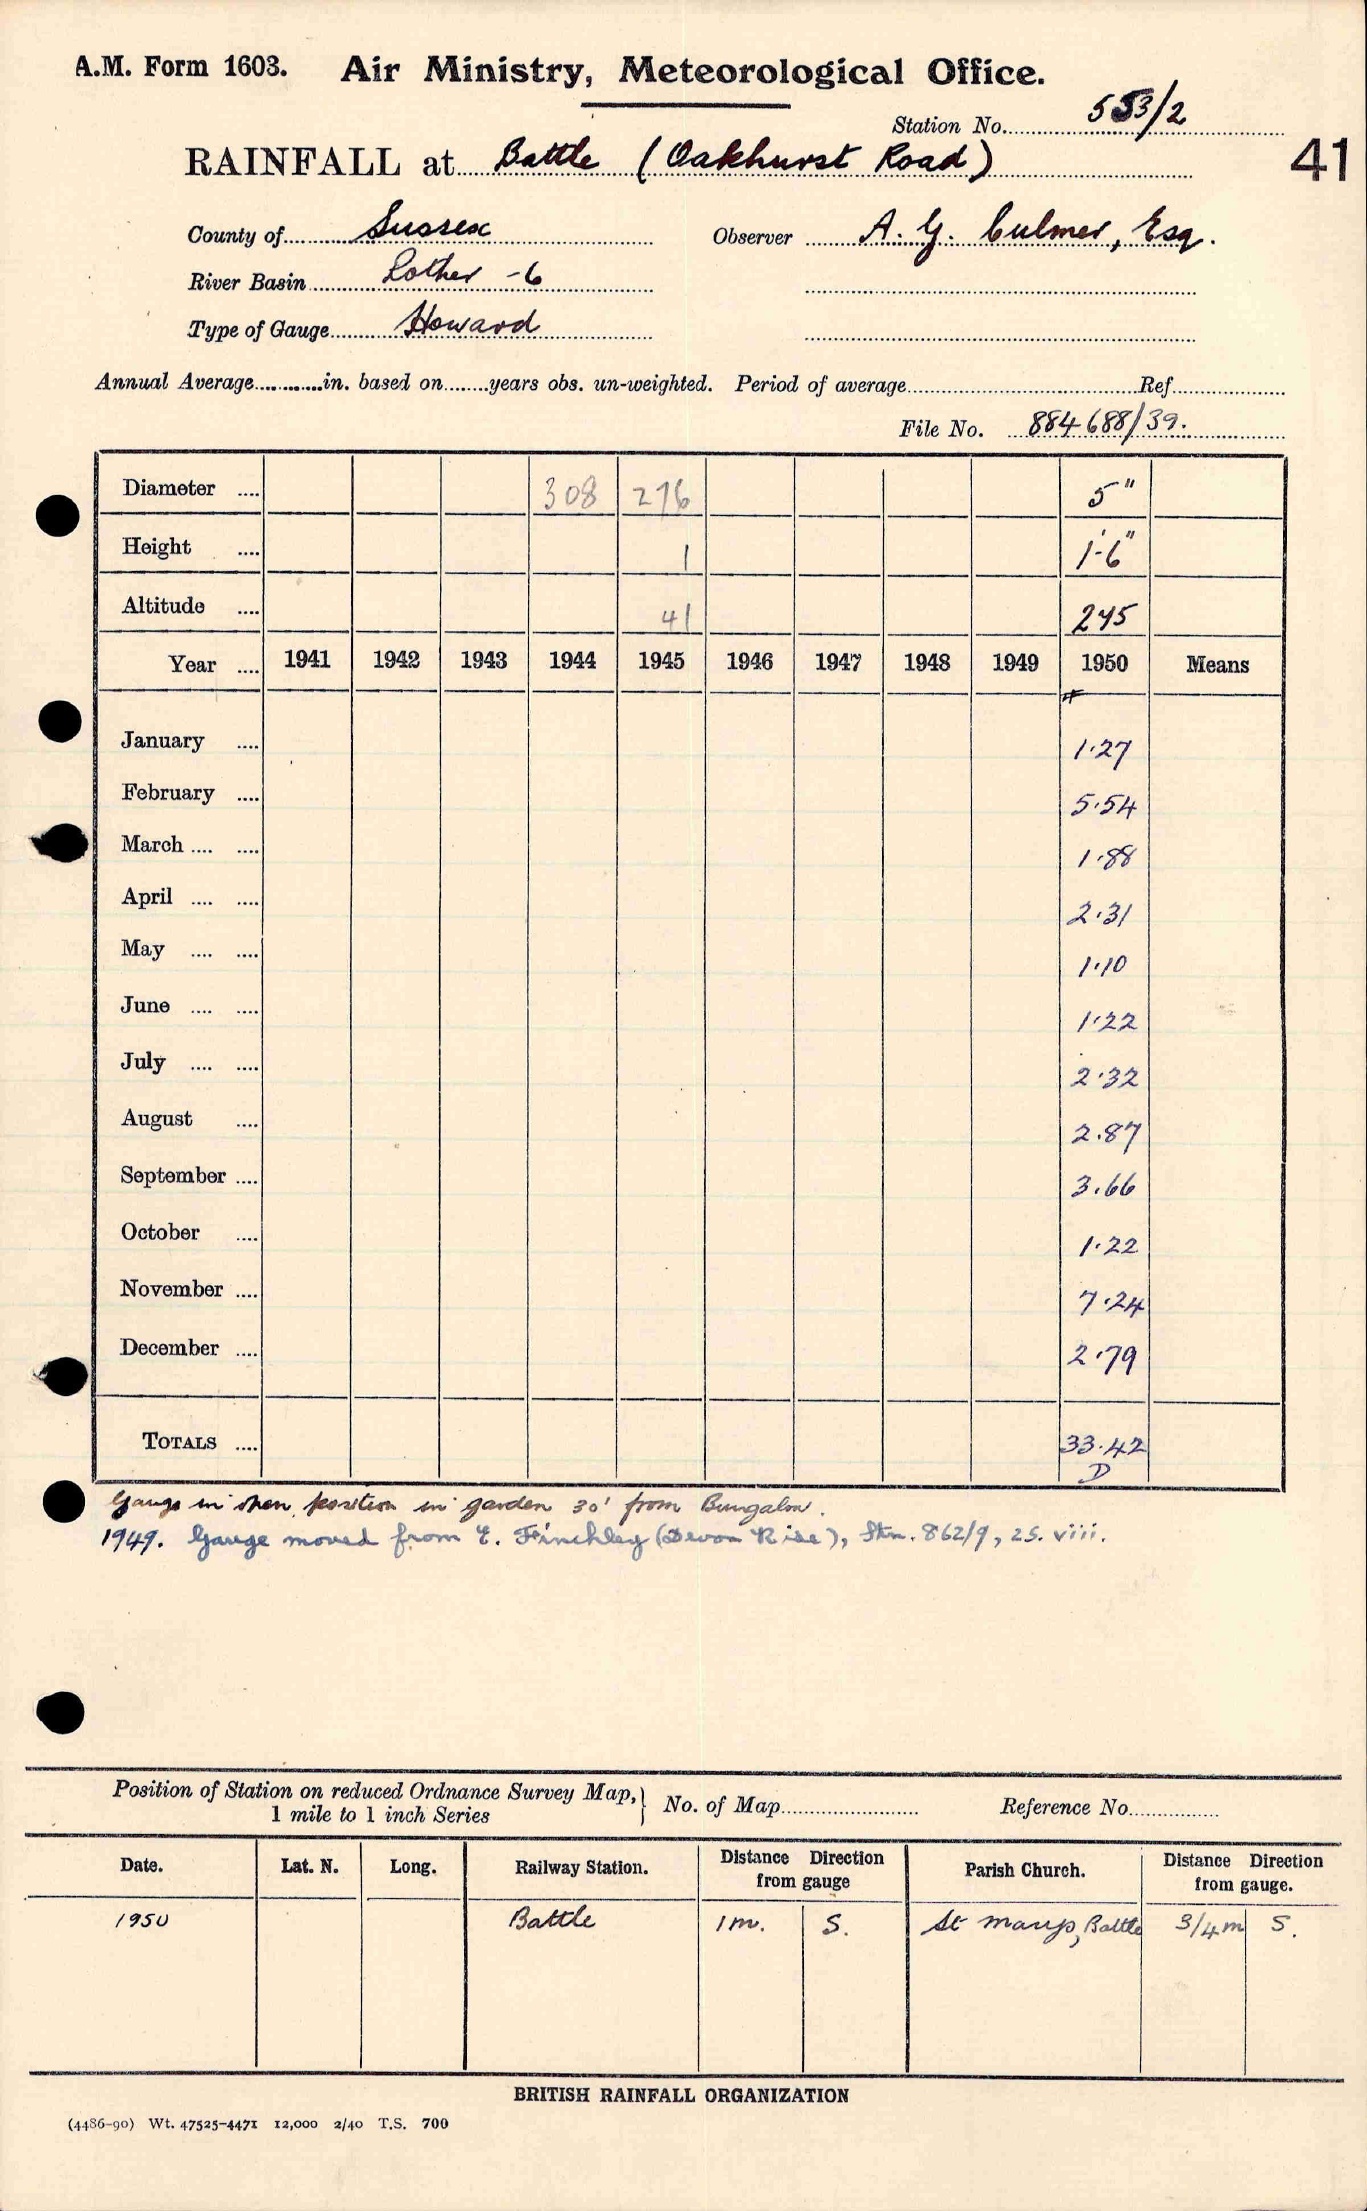 A.M. Form 1603. Air Ministry, Meteorological Office.
Station No. 553/2
41
RAINFALL at Battle (Oakhurst Road)
County of Sussex Observer A. G. Culmer, Esq.
River Basin Rother -6
Type of Gauge Howard
Annual Average............in. based on........years obs. un-weighted. Period of average Ref
File No. 884688/39.
Diameter .... 308 276 5"
Height .... 1 1'-6"
Altitude .... 41 245
Year .... 1941 1942 1943 1944 1945 1946 1947 1948 1949 1950 Means
#
January .... 1·27
February .... 5·54
March .... .... 1·88
April .... .... 2·31
May .... .... 1·10
June .... .... 1·22
July .... .... 2·32
August .... 2.87
September .... 3.66
October .... 1·22
November .... 7·24
December .... 2·79
TOTALS .... 33·42
D
Gauge in open position in garden 30' from Bungalow.
1949. Gauge moved from E. Finchley (Devon Rise), Stn. 862/9, 25. viii.
Position of Station on reduced Ordnance Survey Map, } No. of Map Reference No.
1 mile to 1 inch Series
Date. Lat. N. Long. Railway Station. Distance Direction from gauge Parish Church. Distance Direction from gauge.
1950 Battle 1m. S. St Marys, Battle 3/4m S.
BRITISH RAINFALL ORGANIZATION
(4486-90) Wt. 47525-4471 12,000 2/40 T.S. 700